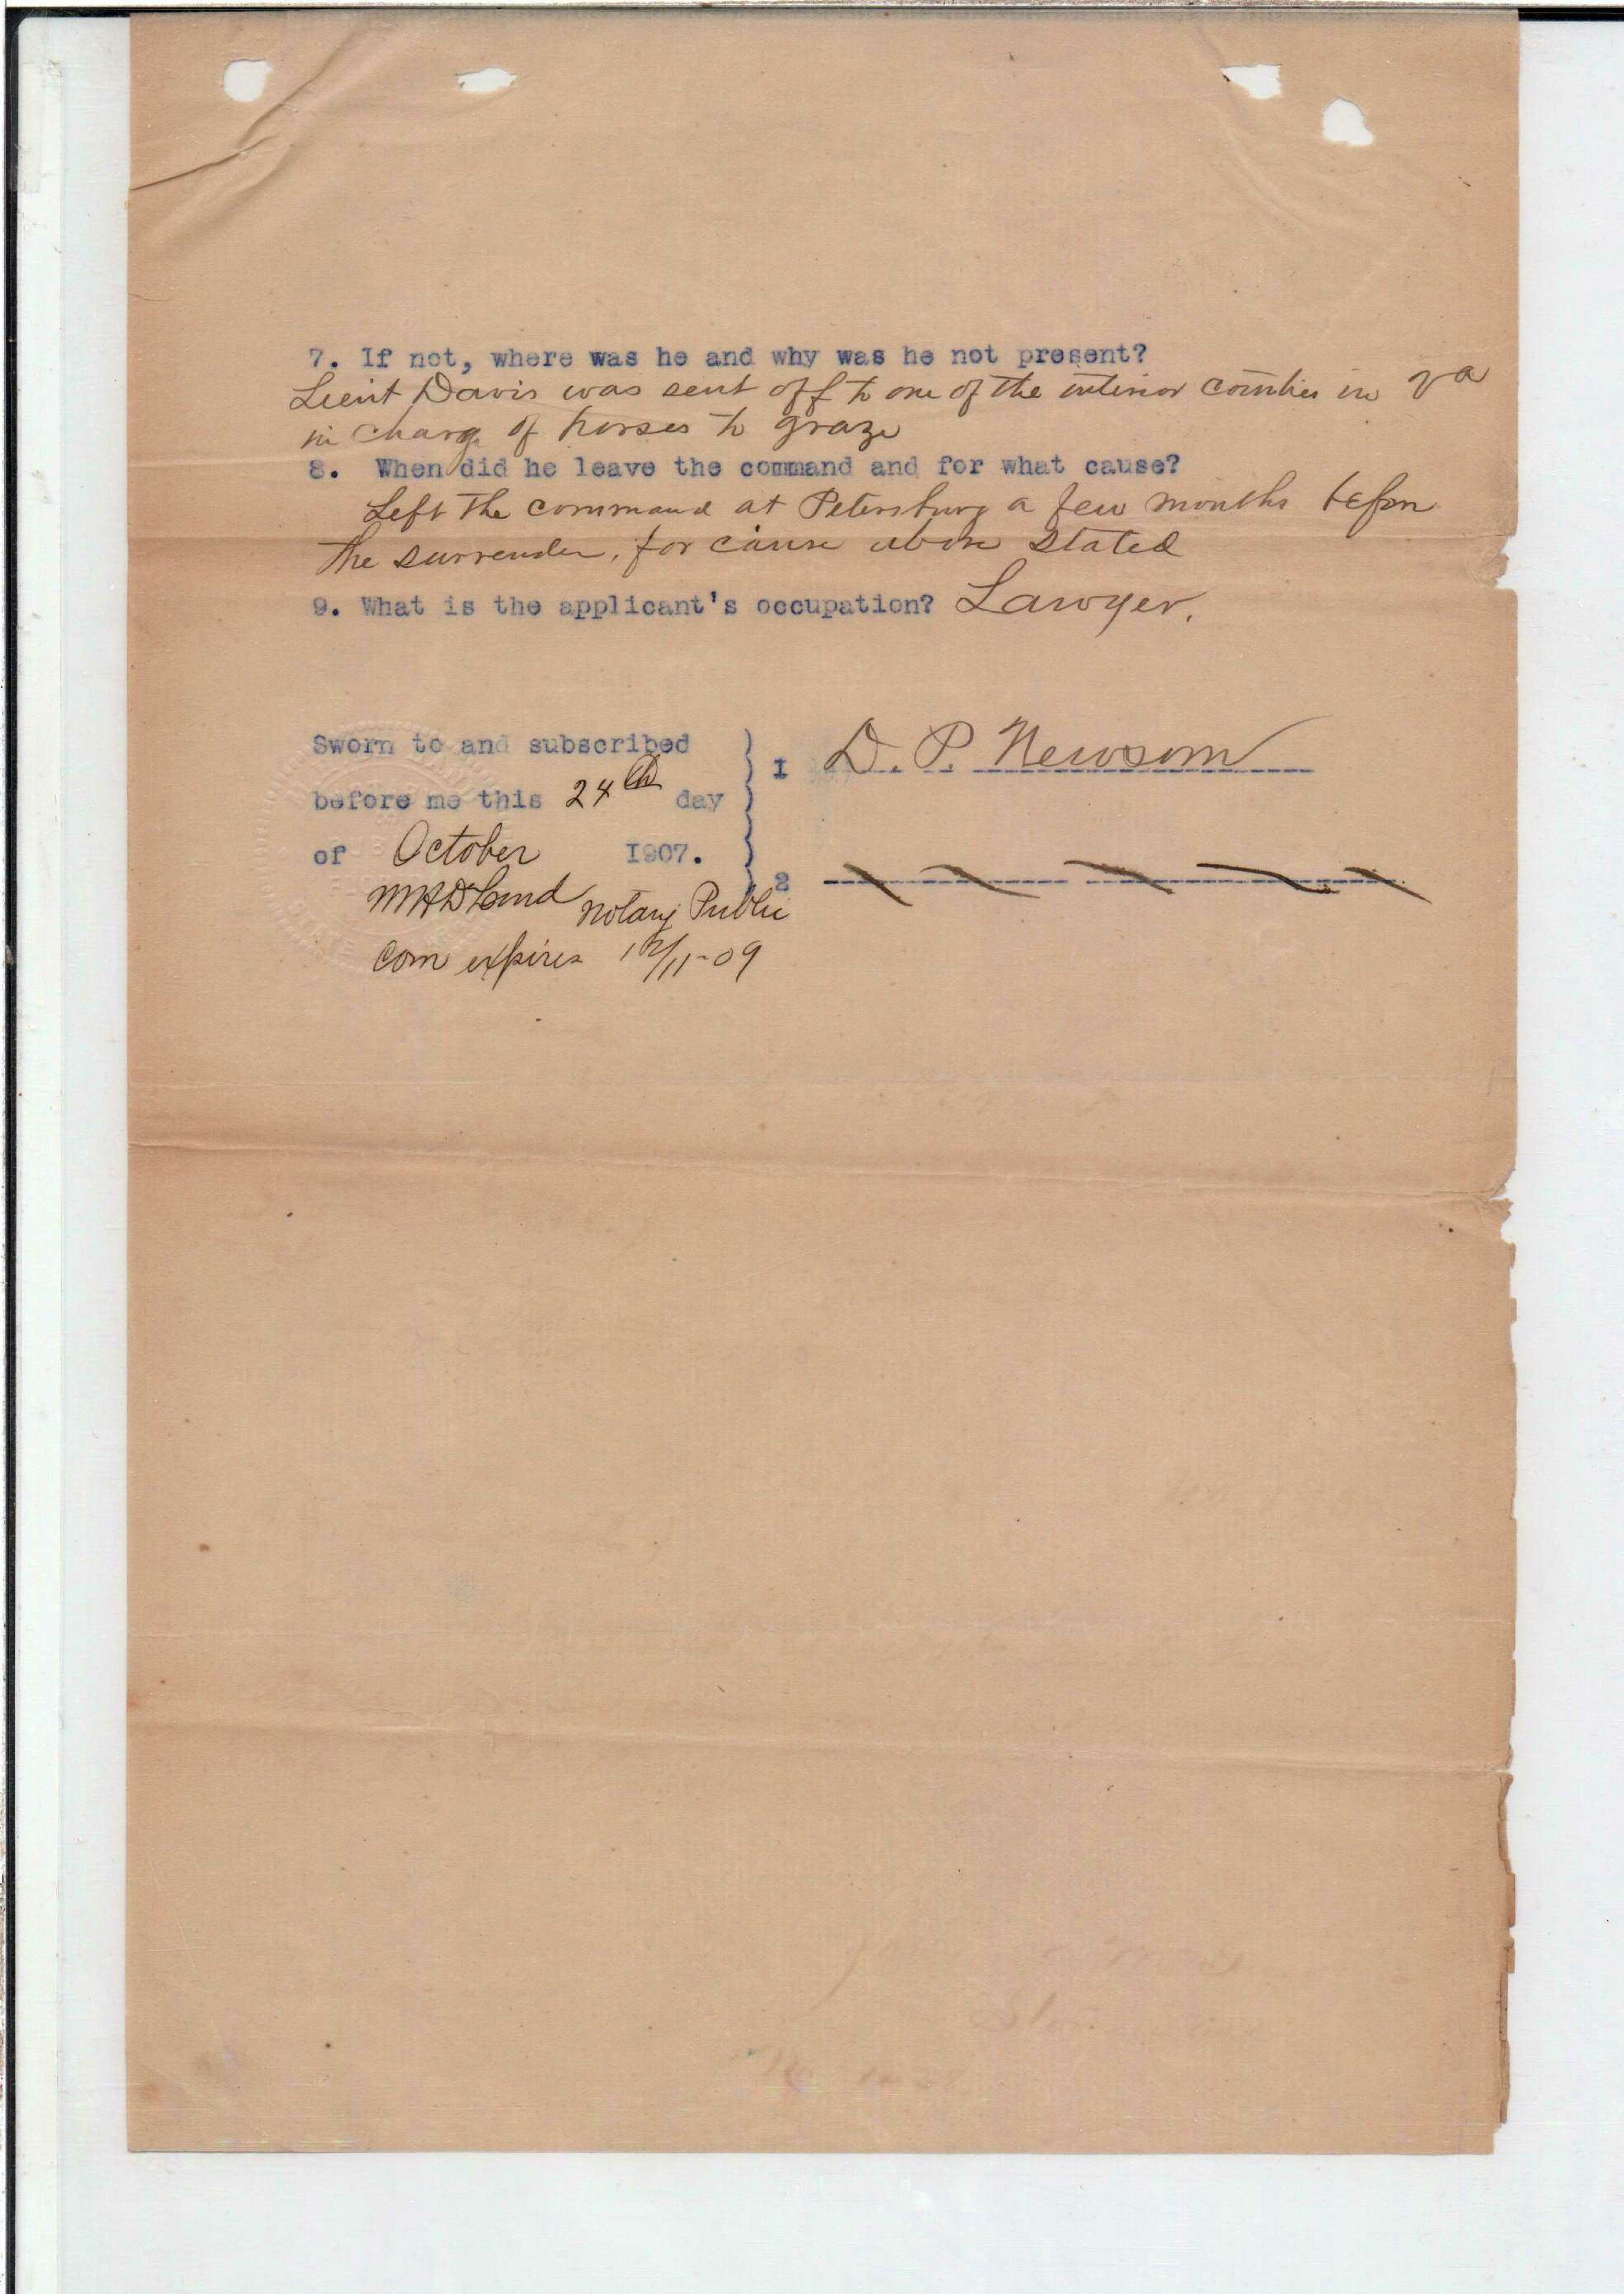 7. If not, where was he and why was he not present?
Lieut Davis was sent off to one of the interior counties in Va
in charge of horses to graze
8. When did he leave the command and for what cause?
Left the command at Petersburg a few months before
the surrender, for cause above stated
9. What is the applicant's occupation? Lawyer.
Sworn to and subscribed
before me this 24th day
of October 1907.
Notary Public
Com expires 12/11-09
I D. P. Newsom
2